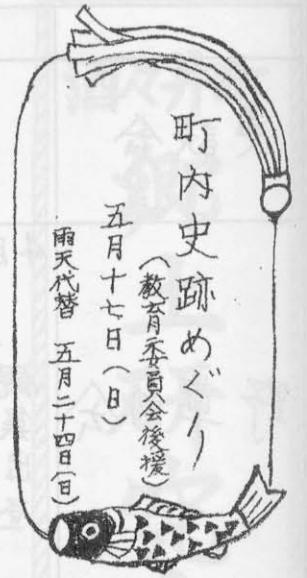 町内史跡めぐり
(教育委員会後援)
五月十七日(日)
雨天代替 五月二十四日(日)